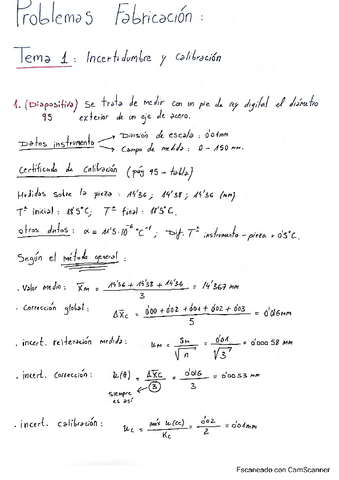 Problemas Fabricación:
Tema 1: Incertidumbre y calibración
1. (Diapositiva) Se trata de medir con un pie de rey digital el diámetro
95 exterior de un eje de acero.
Datos instrumento → División de escala: 0'01 mm
→ Campo de medida: 0 - 150 mm.
Certificado de calibración (pág 95 - tabla)
Medidas sobre la pieza: 14'36 ; 14'38 ; 14'36 (mm)
Tª inicial: 18'5°C; Tª final: 18'5°C.
Otros datos: α = 11'5·10⁻⁶ °C⁻¹ ; Dif. Tª instrumento - pieza = 0'5°C.
Según el método general:
· Valor medio: X̄m = (14'36 + 14'38 + 14'36) / 3 = 14'367 mm
· Corrección global: ΔX̄c = (0'00 + 0'02 + 0'01 + 0'02 + 0'03) / 5 = 0'016 mm
· incert. reiteración medida: um = Sm / √n = 0'01 / √3 = 0'00058 mm
· incert. corrección: u(θ) = ΔX̄c / 3 = 0'016 / 3 = 0'0053 mm
siempre es así
· incert. calibración: uc = máx u(cc) / Kc = 0'02 / 2 = 0'01 mm
Escaneado con CamScanner